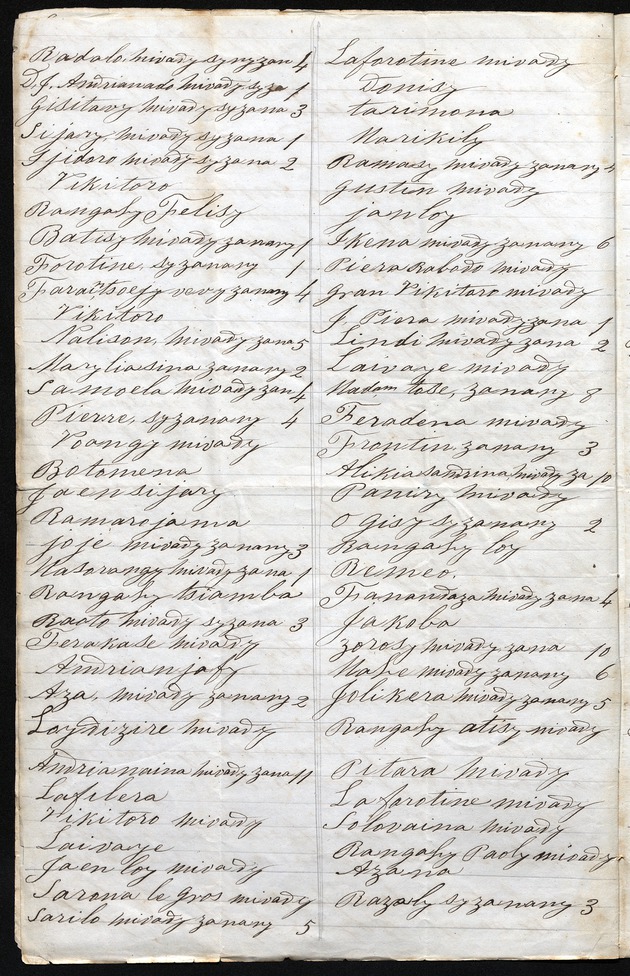 Radalo mivady syzyzan 4
D. J. Andrianado mivady syza 1
Gisitavy mivady syzana 3
Sijary, mivady syzana 1
Isidoro mivady syzana 2
Vikitoro
Rangahy Felisy
Batisy mivady zanany 1
Forotine, syzanany 1
Faratsoejy vevy zanany 4
Vikitoro
Nalison, mivady zana 5
Maryliasina zanany 2
Samoela mivady zan 4
Pierre, syzanany 4
Voangy mivady
Botomena
Jaensijary
Ramarojama
Joje mivady zanany 3
Masorangy mivady zana 1
Rangahy tsiamba
Raoto mivady syzana 3
Ferakase mivady
Andrianjafy
Aza, mivady zanany 2
Laydizire mivady
Andrianaina mivady zana 11
Lafilera
Vikitoro mivady
Laivaye
Jaen loy mivady
Sarona le gros mivady
Sarilo mivady zanany 5
Laforotine mivady
Donisy
tarimona
Marikily
Ramasy mivady zanany 4
Gustin mivady
janloy
Ikena mivady zanany 6
Piera Rabodo mivady
Gran Vikitoro mivady
J. Piera mivady zana 1
Lindi mivady zana 2
Laivaye mivady
Madam tase, zanany 8
Feradena mivady
Frontin zanany 3
Alikia sandrina mivady za 10
Paniry mivady
Ogisy syzanany 2
Rangahy loy
Remeo.
Fanandaza mivady zana 4
Jakoba
Zorosy mivady zana 10
Mahe mivady zanany 6
Jolikera mivady zanany 5
Rangahy atisy mivady
Pitara mivady
Laforotine mivady
Solovaina mivady
Rangahy Paoly mivady
Azana
Razaly syzanany 3